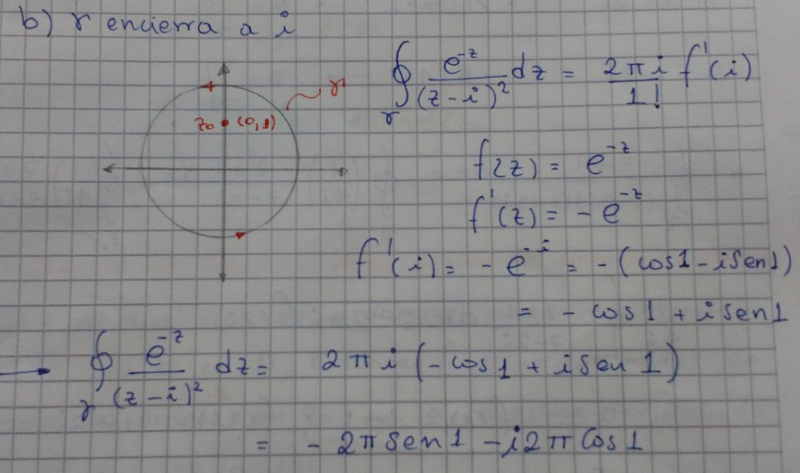 b) γ encierra a i
γ
z₀ (0,1)
∮γ e^-z/(z-i)² dz = 2πi/1! f'(i)
f(z) = e^-z
f'(z) = -e^-z
f'(i) = -e^-i = -(cos1-isen1)
= -cos1 + isen1
→ ∮γ e^-z/(z-i)² dz = 2πi (-cos1 + isen1)
= -2πsen1 -i2πcos1